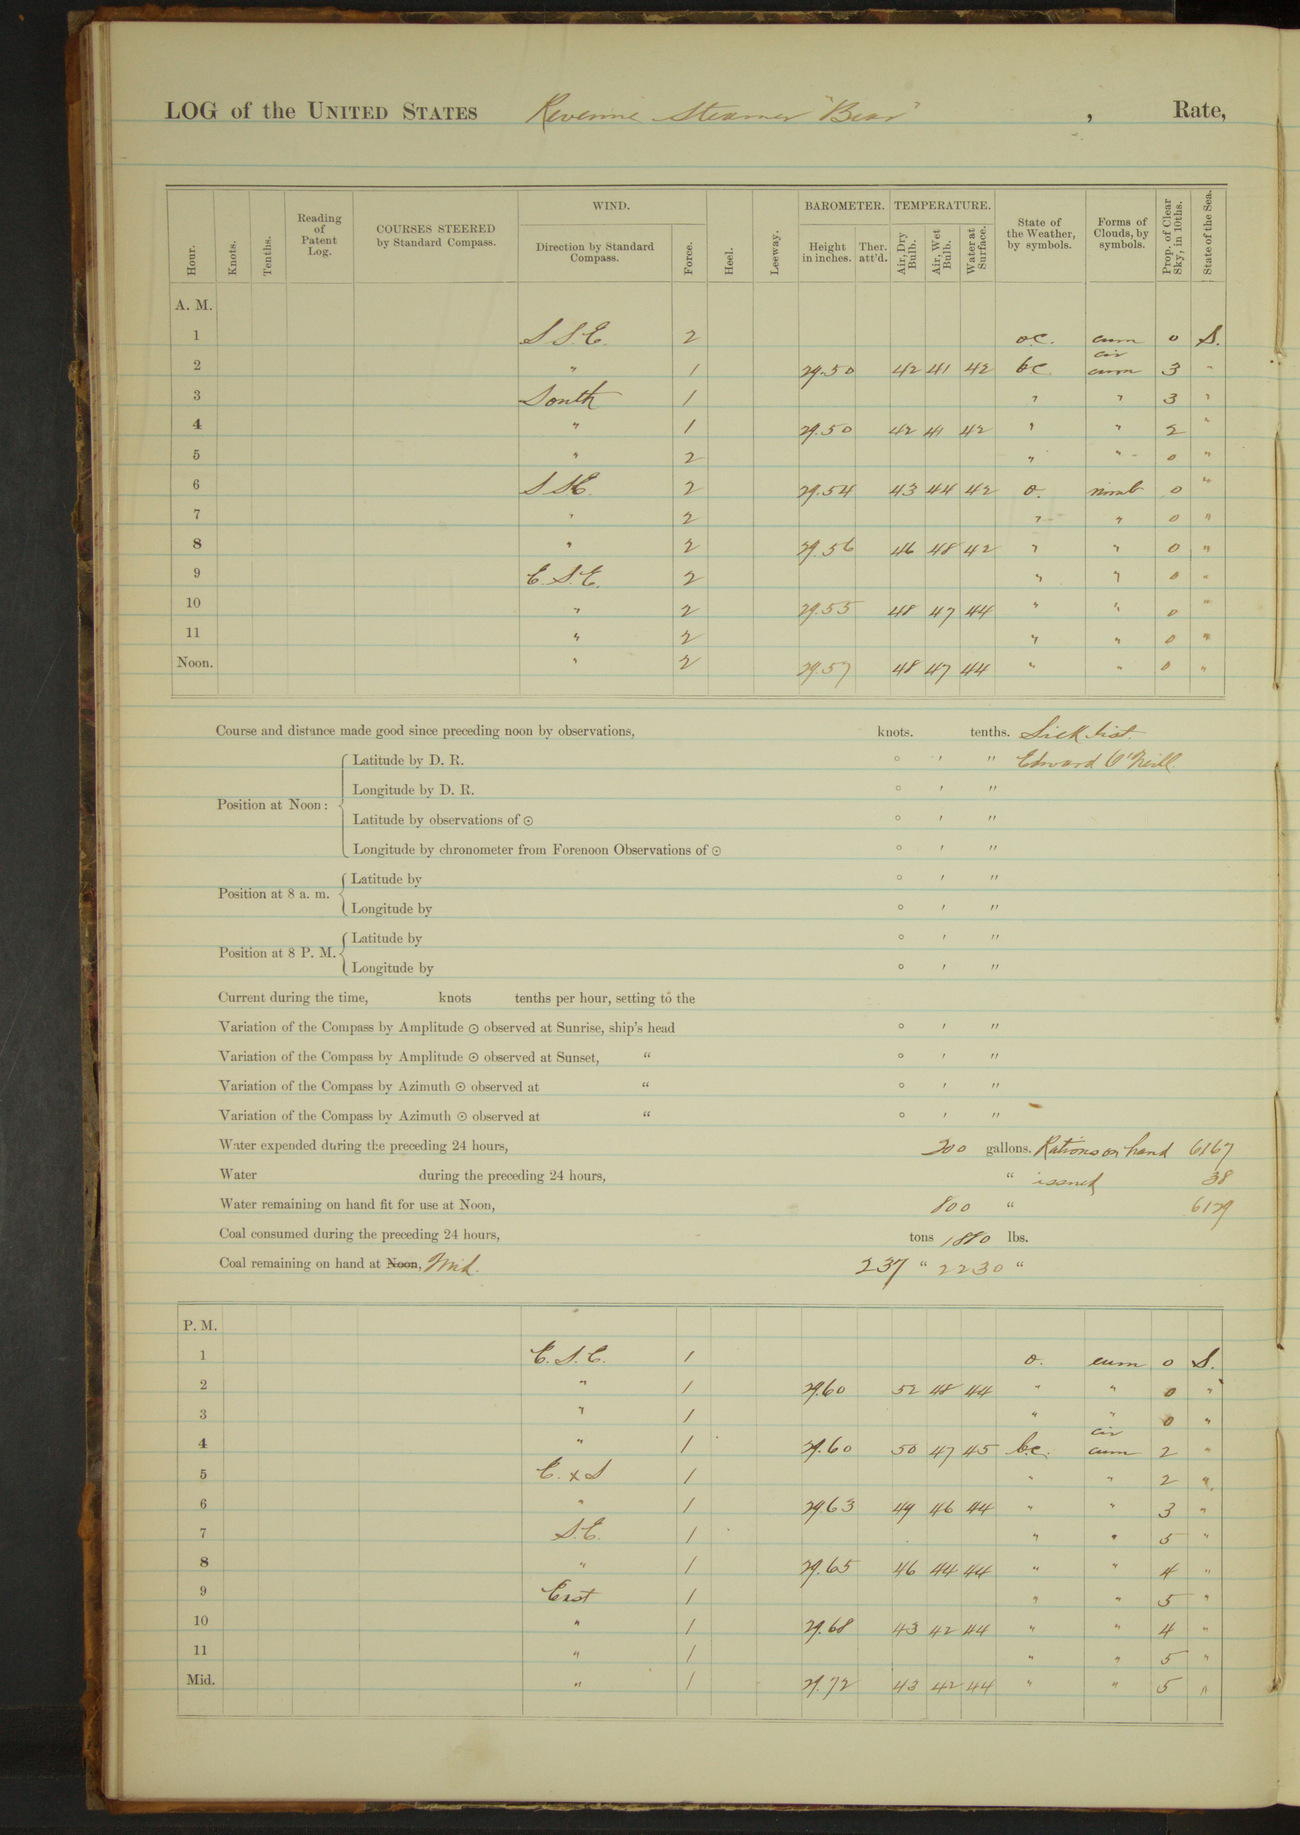 LOG of the UNITED STATES Revenue Steamer "Bear" , Rate,
Hour. Knots. Tenths. Reading of Patent Log. COURSES STEERED by Standard Compass. WIND. Direction by Standard Compass. Force. Heel. Leeway. BAROMETER. Height in inches. Ther. att'd. TEMPERATURE. Air, Dry Bulb. Air, Wet Bulb. Water at Surface. State of the Weather, by symbols. Forms of Clouds, by symbols. Prop. of Clear Sky, in 10ths. State of the Sea.
A. M.
1 S S.E. 2 o.c. cum 0 S.
2 " 1 29.50 42 41 42 bc cir cum 3 "
3 South 1 " " 3 "
4 " 1 29.50 42 41 42 " " 2 "
5 " 2 " " 0 "
6 S SE. 2 29.54 43 44 42 o. nimb 0 "
7 " 2 " " 0 "
8 " 2 29.56 46 48 42 " " 0 "
9 E. S.E. 2 " " 0 "
10 " 2 29.55 48 47 44 " " 0 "
11 " 2 " " 0 "
Noon. " 2 29.57 48 47 44 " " 0 "
Course and distance made good since preceding noon by observations, knots. tenths. Sick list.
Latitude by D. R. ° ' " Edward O'Neill.
Longitude by D. R. ° ' "
Position at Noon:
Latitude by observations of ⊙ ° ' "
Longitude by chronometer from Forenoon Observations of ⊙ ° ' "
Latitude by ° ' "
Position at 8 a. m.
Longitude by ° ' "
Latitude by ° ' "
Position at 8 P. M.
Longitude by ° ' "
Current during the time, knots tenths per hour, setting to the
Variation of the Compass by Amplitude ⊙ observed at Sunrise, ship's head ° ' "
Variation of the Compass by Amplitude ⊙ observed at Sunset, " ° ' "
Variation of the Compass by Azimuth ⊙ observed at " ° ' "
Variation of the Compass by Azimuth ⊙ observed at " ° ' "
Water expended during the preceding 24 hours, 200 gallons. Rations on hand 6167
Water during the preceding 24 hours, " issued 38
Water remaining on hand fit for use at Noon, 800 " 6129
Coal consumed during the preceding 24 hours, tons 1880 lbs.
Coal remaining on hand at Noon, Mid. 237 " 2230 "
P. M.
1 E. S. E. 1 o. cum 0 S.
2 " 1 29.60 52 48 44 " " 0 "
3 " 1 " " 0 "
4 " 1 29.60 50 47 45 b.c. cir cum 2 "
5 E. x S 1 " " 2 "
6 " 1 29.63 49 46 44 " " 3 "
7 S.E. 1 " " 5 "
8 " 1 29.65 46 44 44 " " 4 "
9 East 1 " " 5 "
10 " 1 29.68 43 42 44 " " 4 "
11 " 1 " " 5 "
Mid. " 1 29.72 43 42 44 " " 5 "